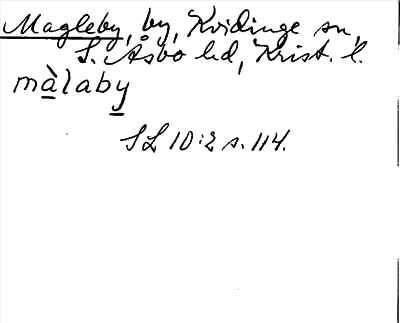 Magleby, by, Kvidinge sn,
S. Åsbo hd, Krist. l.
màlaby
SL 10:2 s. 114.